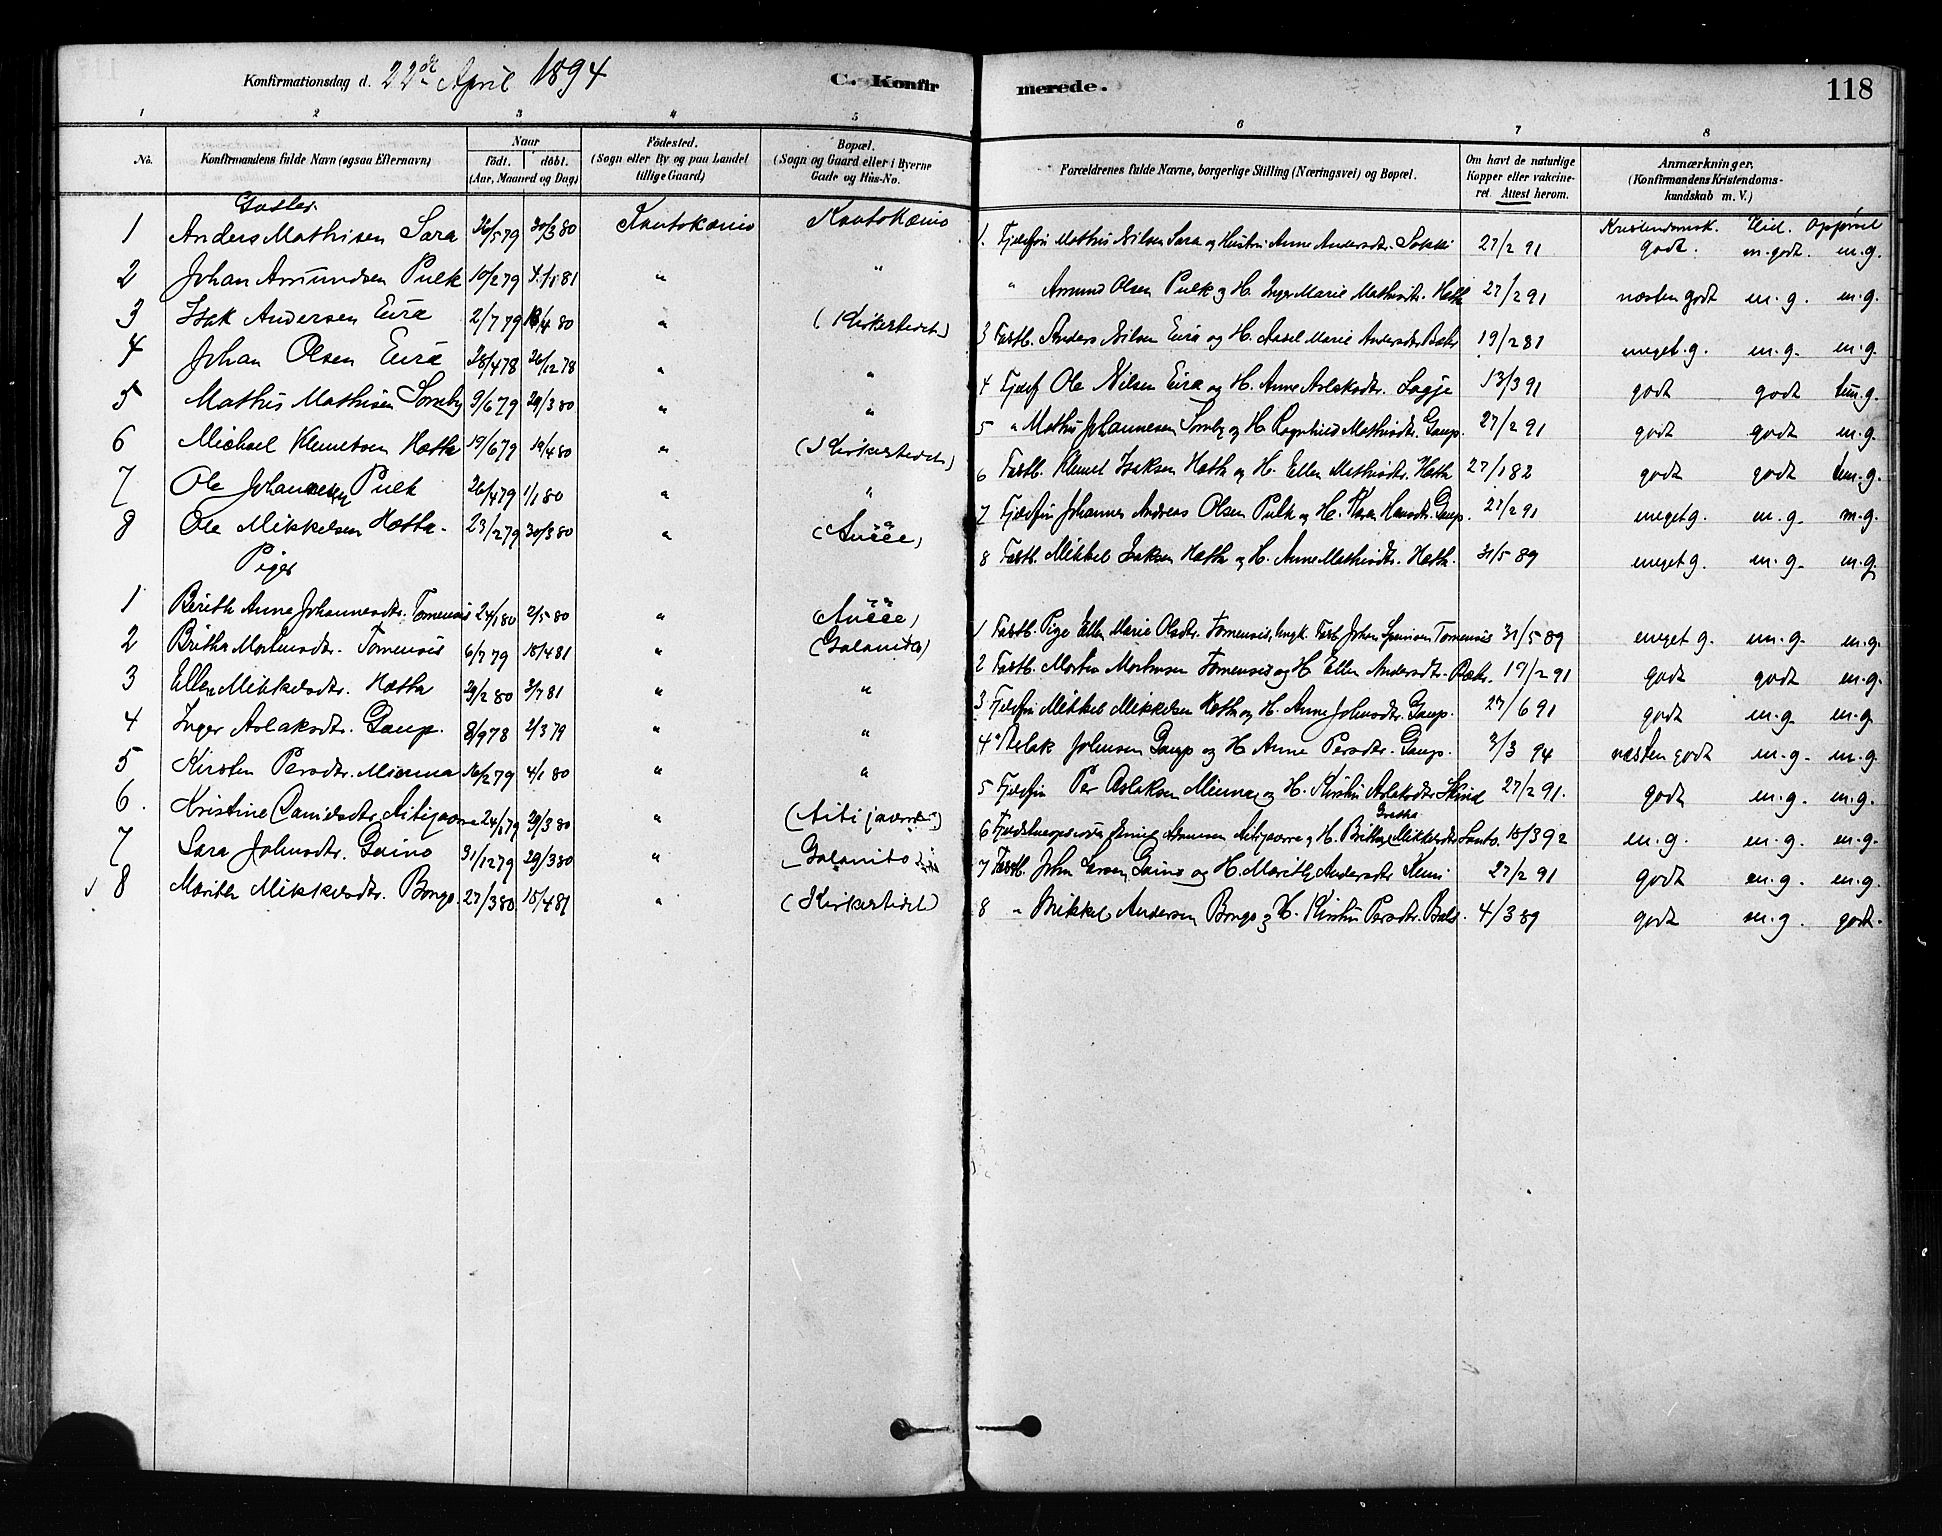 Konfirmationsdag d. 22de April 1894
C. Konfirmerede.
118
1 2 3 4 5 6 7 8
No.
Konfirmandens fulde Navn (øgsaa Efternavn)
Naar født. døbt. (Aar, Maaned og Dag)
Fødested. (Sogn eller By og paa Landet tillige Gaard)
Bopæl. (Sogn og Gaard eller i Byerne Gade og Hus-No.
Forældrenes fulde Navne, borgerlige Stilling (Næringsvei) og Bopæl.
Om havt de naturlige Kopper eller vakcineret. Attest herom.
Anmærkninger. (Konfirmandens Kristendomskundskab m. V.)
Gutter.
Kristendomsk. Flid. Opførsel
1 Anders Mathisen Sara 26/5 79 30/3 80 Kautokæino Kautokæino 1. Fjeldfin Mathis Nilsen Sara og Hustru Anne Andersdtr. Sokki 27/2 91 godt. m. godt. m. g.
2 Johan Amundsen Pulk 10/2 79 4/1 81 " " " Amund Olsen Pulk og H. Inger Marie Mathisdtr. Hætta 27/2 91 næsten godt m. g. m. g.
3 Isak Andersen Eira 2/7 79 18/4 80 " (Kirkestedet) 3 Fastb. Anders Nilsen Eira og H. Marie Andersdtr. Bæhr 19/2 81 meget g. m. g. m. g.
4 Johan Olsen Eira 28/4 78 26/12 78 " " 4 Fjeldf Ole Nilsen Eira og H. Anne Aslaksdtr. Logje 13/3 91 godt godt m. g.
5 Mathis Mathisen Somby 9/6 79 29/3 80 " " 5 " Mathis Johannesen Somby og H. Ragnhild Mathisdtr. Gaup. 27/2 91 godt godt m. g.
6 Michael Klemetsen Hætta 19/6 79 19/4 80 " (Kirkestedet) 6 Fastb. Klemet Isaksen Hætta og H. Ellen Mathisdtr. Hætta 27/1 82 godt godt m. g.
7 Ole Johannesen Pulk 26/4 79 1/1 80 " " 7 Fjeldfin Johannes Andreas Olsen Pulk og H. Karen Hansdtr. Gaup. 27/2 91 meget g. m. g. m. g.
8 Ole Mikkelsen Hætta. 23/2 79 30/3 80 " (Aucce) 8 Fastb. Mikkel Isaksen Hætta og H. Anne Mathisdtr. Hætta. 31/5 89 meget g. m. g. m. g.
Piger
1 Berith Anne Johannesdtr. Tornensis 24/1 80 2/5 80 " (Aucce) 1 Fastb. Pige Ellen Marie Olsdtr. Tornensis, Ungk. Fastb. Johan Tornensis 31/5 89 meget g. m. g. m. g.
2 Britha Mortensdtr. Tornensis 6/7 79 18/4 81 " (Galanito) 2 Fastb. Morten Mortensen Tornensis og H. Ellen Andersdtr. Bæhr. 19/2 91 godt godt m. g.
3 Ellen Mikkelsdtr. Hætta 29/2 80 3/7 81 " " 3 Fjeldfin Mikkel Mikkelsen Hætta og H. Anne Johnsdtr. Gaup. 27/6 91 godt m. g. m. g.
4 Inger Aslaksdtr. Gaup. 8/9 78 2/3 79 " " 4 " Aslak Johnsen Gaup og H. Anne Persdtr. Gaup. 3/3 94 næsten godt m. g. m. g.
5 Kirsten Persdtr. Mienna 16/2 79 4/1 80 " " 5 Fjeldfin Per Aslaksen Mienna og H. Kirsten Aslaksdtr. Skind 27/2 91. godt m. g. m. g.
6. Kristine Danielsdtr. Aitijavre 24/1 79 29/3 80 " (Aitijavre) 6 Aitijavre og H. Britha Gretha Mikkelsdtr. 18/3 92 m. g. m. g. m. g.
7 Sara Johnsdtr. Gaino 31/12 79 29/3 80 " Galanito 7 Fastb. John Larsen Gaino og H. Marith Andersdtr. Kemi 27/2 91 godt m. g. m. g.
8 Marith Mikkelsdtr. Bongo. 27/3 80 15/4 81 " (Kirkestedet) 8 " Mikkel Andersen Bongo og H. Kirsten Persdtr. Bals. 4/3 89 godt m. g. godt.